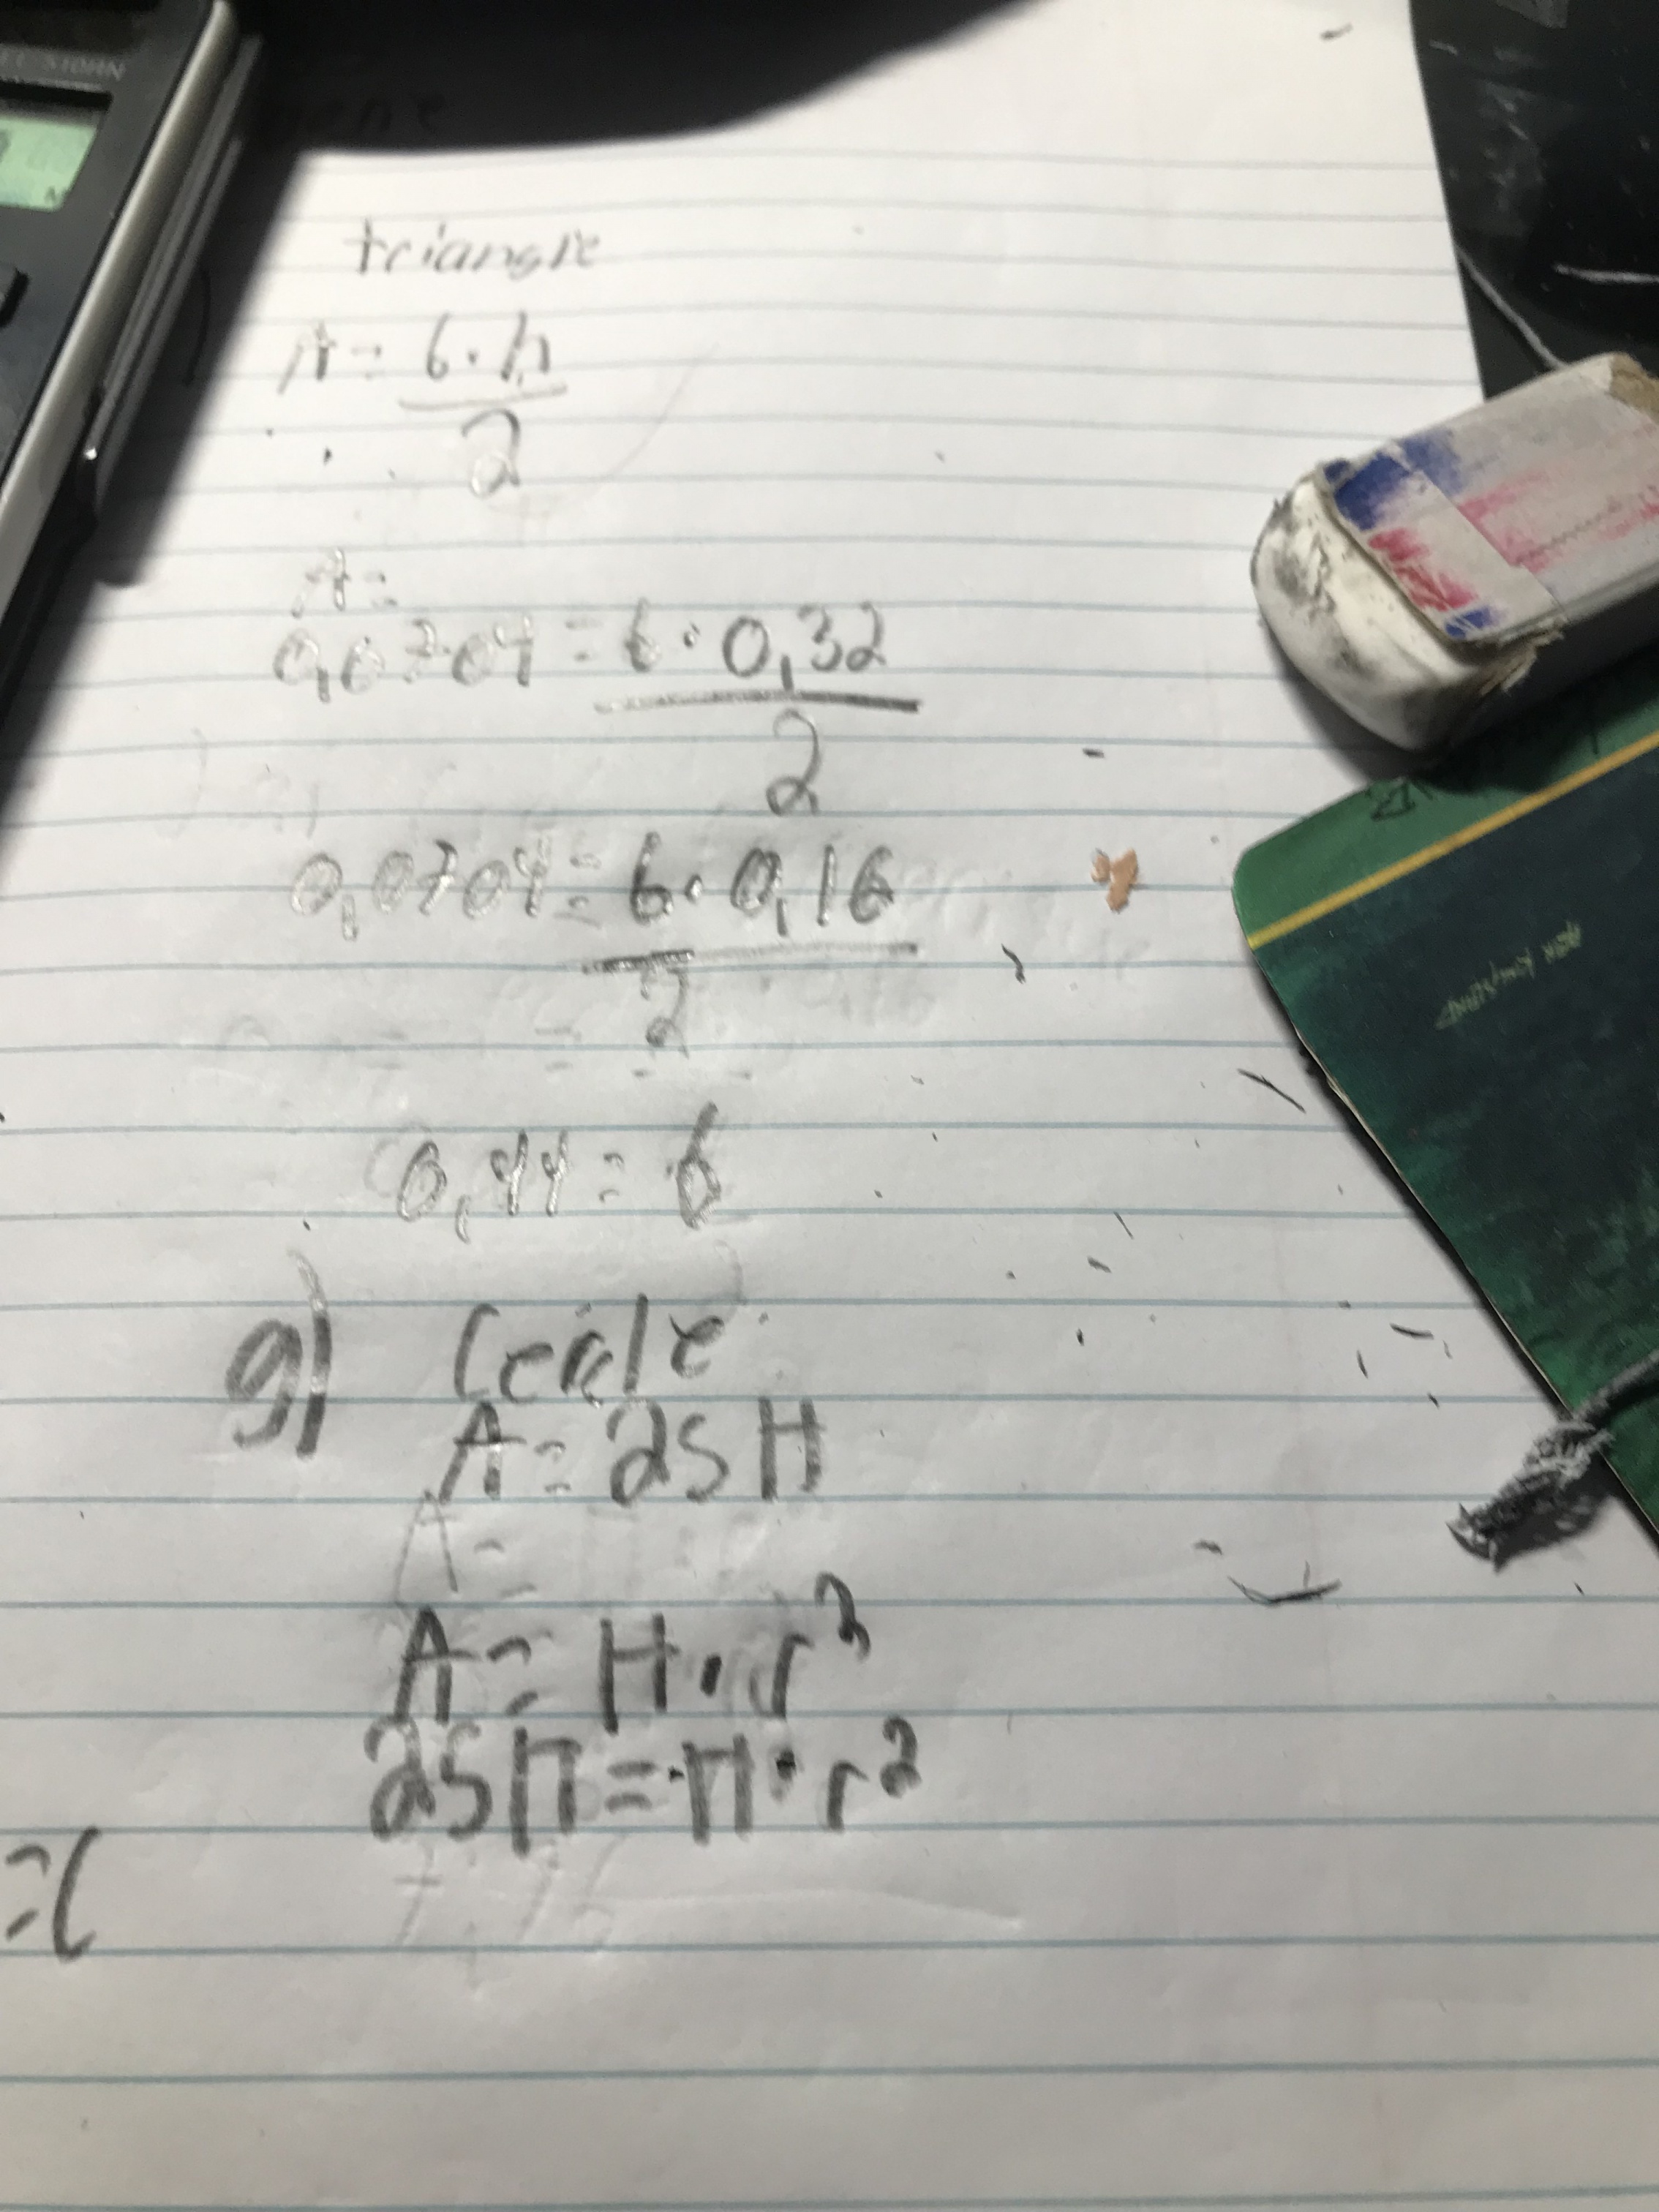 triangle
A = b·h
2
A =
0,0704 = b·0,32
2
0,0704 = b·0,16
2
0,44 = b
g) Cercle
A = 25 π
A =
A = π · r²
25π = π · r²
=(